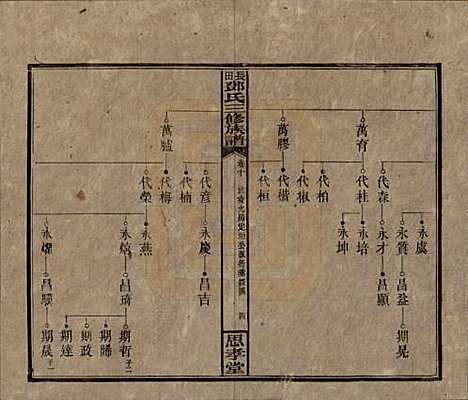 萬有
萬膠
萬臚
代森
代桂
代柏
代椒
代楷
代桓
代彥
代楠
代梅
代榮
永虞
永質
永才
永培
永坤
永慶
永燕
永熺
永燿
昌益
昌顯
昌吉
昌琦
昌驥
期晃
期哲
期晞
期政
期達
期晟
長田鄧氏三修族譜
卷十
四
思孝堂